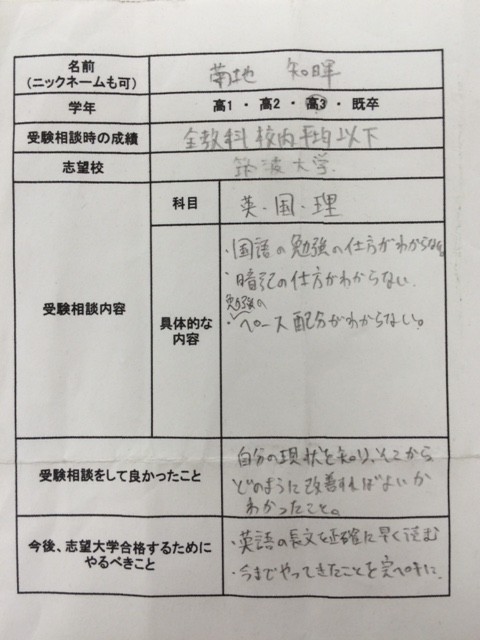 名前
(ニックネームも可)
菊地 知暉
学年
高1・高2・高3・既卒
受験相談時の成績
全教科校内平均以下
志望校
筑波大学
受験相談内容
科目
英・国・理
具体的な
内容
・国語の勉強の仕方がわからない
・暗記の仕方がわからない
勉強の
・ペース配分がわからない。
受験相談をして良かったこと
自分の現状を知り、そこから
どのように改善すればよいか
わかったこと。
今後、志望大学合格するために
やるべきこと
・英語の長文を正確に早く読む
・今までやってきたことを完ペキに